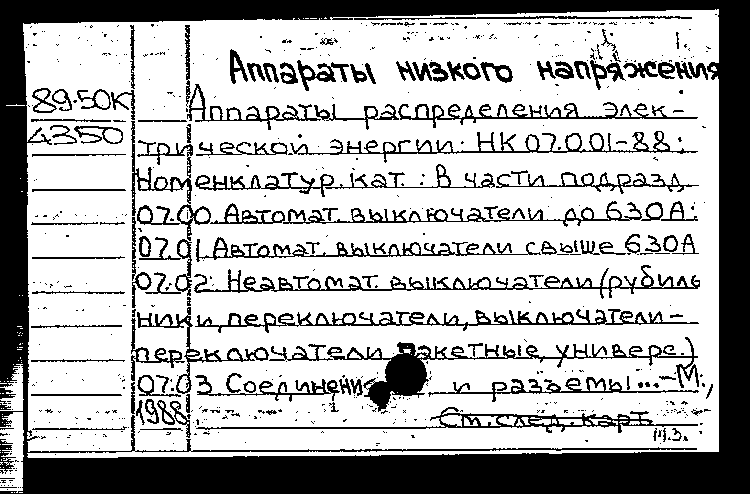 Аппараты низкого напряжения
89-50К Аппараты распределения элек-
4350 трической энергии: НК 07.0.01-88:
Номенклатур. кат. : В части подразд.
07.00. Автомат. выключатели до 630А:
07.01. Автомат. выключатели свыше 630А
07.02. Неавтомат. выключатели (рубиль
ники, переключатели, выключатели-
переключатели пакетные, универс.)
07.03 Соединени и разъемы...-М.,
1988
См. след. карт.
М.З.